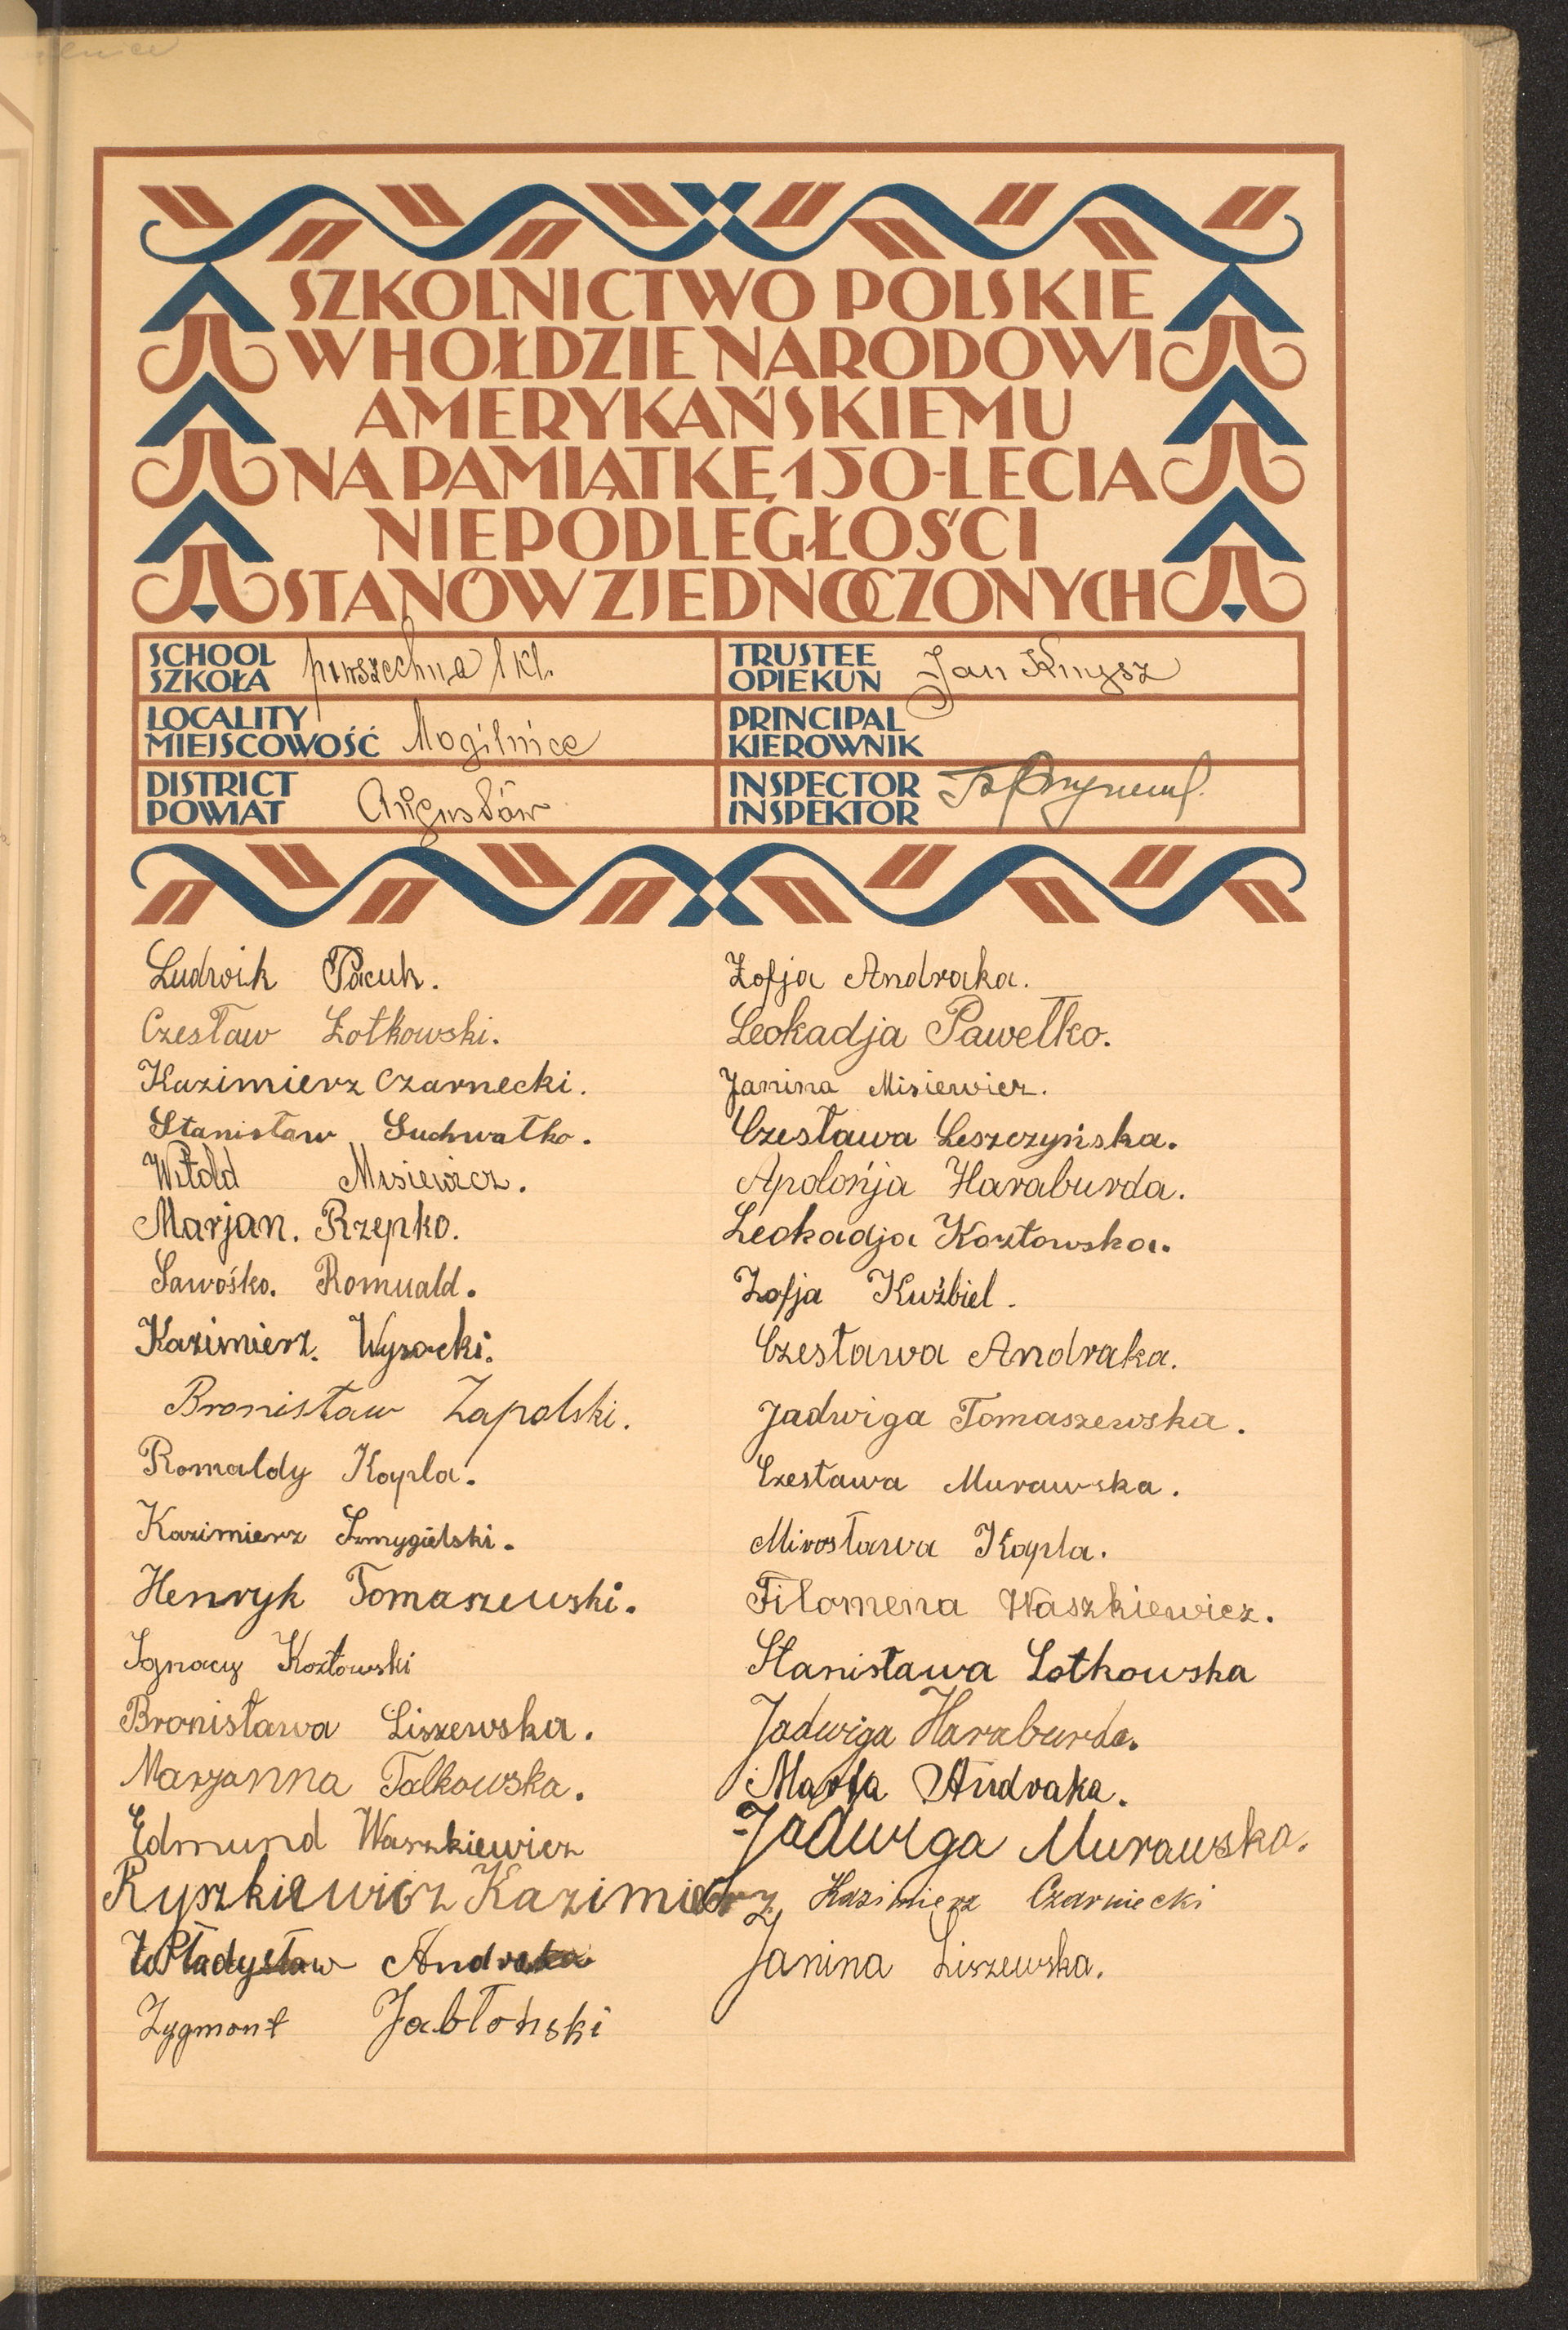 SZKOLNICTWO POLSKIE
W HOŁDZIE NARODOWI
AMERYKAŃSKIEMU
NA PAMIĄTKĘ 150-LECIA
NIEPODLEGŁOŚCI
STANÓW ZJEDNOCZONYCH
SCHOOL
SZKOŁA powszechna 1 kl.
LOCALITY
MIEJSCOWOŚĆ Mogilnice
DISTRICT
POWIAT Augustów
TRUSTEE
OPIEKUN Jan
PRINCIPAL
KIEROWNIK
INSPECTOR
INSPEKTOR
Ludwik Pacuk.
Czesław Łotkowski.
Kazimierz Czarnecki.
Stanisław Suchwałko.
Witold Misiewicz.
Marjan. Rzepko.
Sawośko. Romuald.
Kazimierz. Wysocki.
Bronisław Zapolski.
Romaldy Kapla.
Kazimierz Szmygielski.
Henryk Tomaszewski.
Ignacy Kozłowski
Bronisława Liszewska.
Marjanna Talkowska.
Edmund Waszkiewicz
Ryszkiewicz Kazimierz
Władysław Andraka
Zygmont Jabłoński
Zofja Andraka.
Leokadja Pawełko.
Janina Misiewicz.
Czesława Leszczyńska.
Apolońja Haraburda.
Leokadja Kozłowska.
Zofja Kuźbiel.
Czesława Andraka.
Jadwiga Tomaszewska.
Czesława Murawska.
Mirosława Kapla.
Filomena Waszkiewicz.
Stanisława Łotkowska
Jadwiga Haraburda.
Marja Andraka.
Jadwiga Murawska.
Kazimierz Czarniecki
Janina Liszewska.